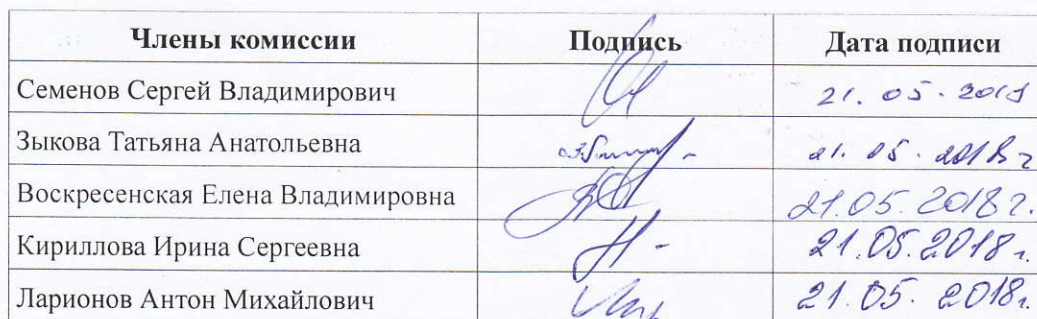 Члены комиссии Подпись Дата подписи
Семенов Сергей Владимирович 21.05.2018
Зыкова Татьяна Анатольевна 21.05.2018г
Воскресенская Елена Владимировна 21.05.2018г.
Кириллова Ирина Сергеевна 21.05.2018г.
Ларионов Антон Михайлович 21.05.2018г.